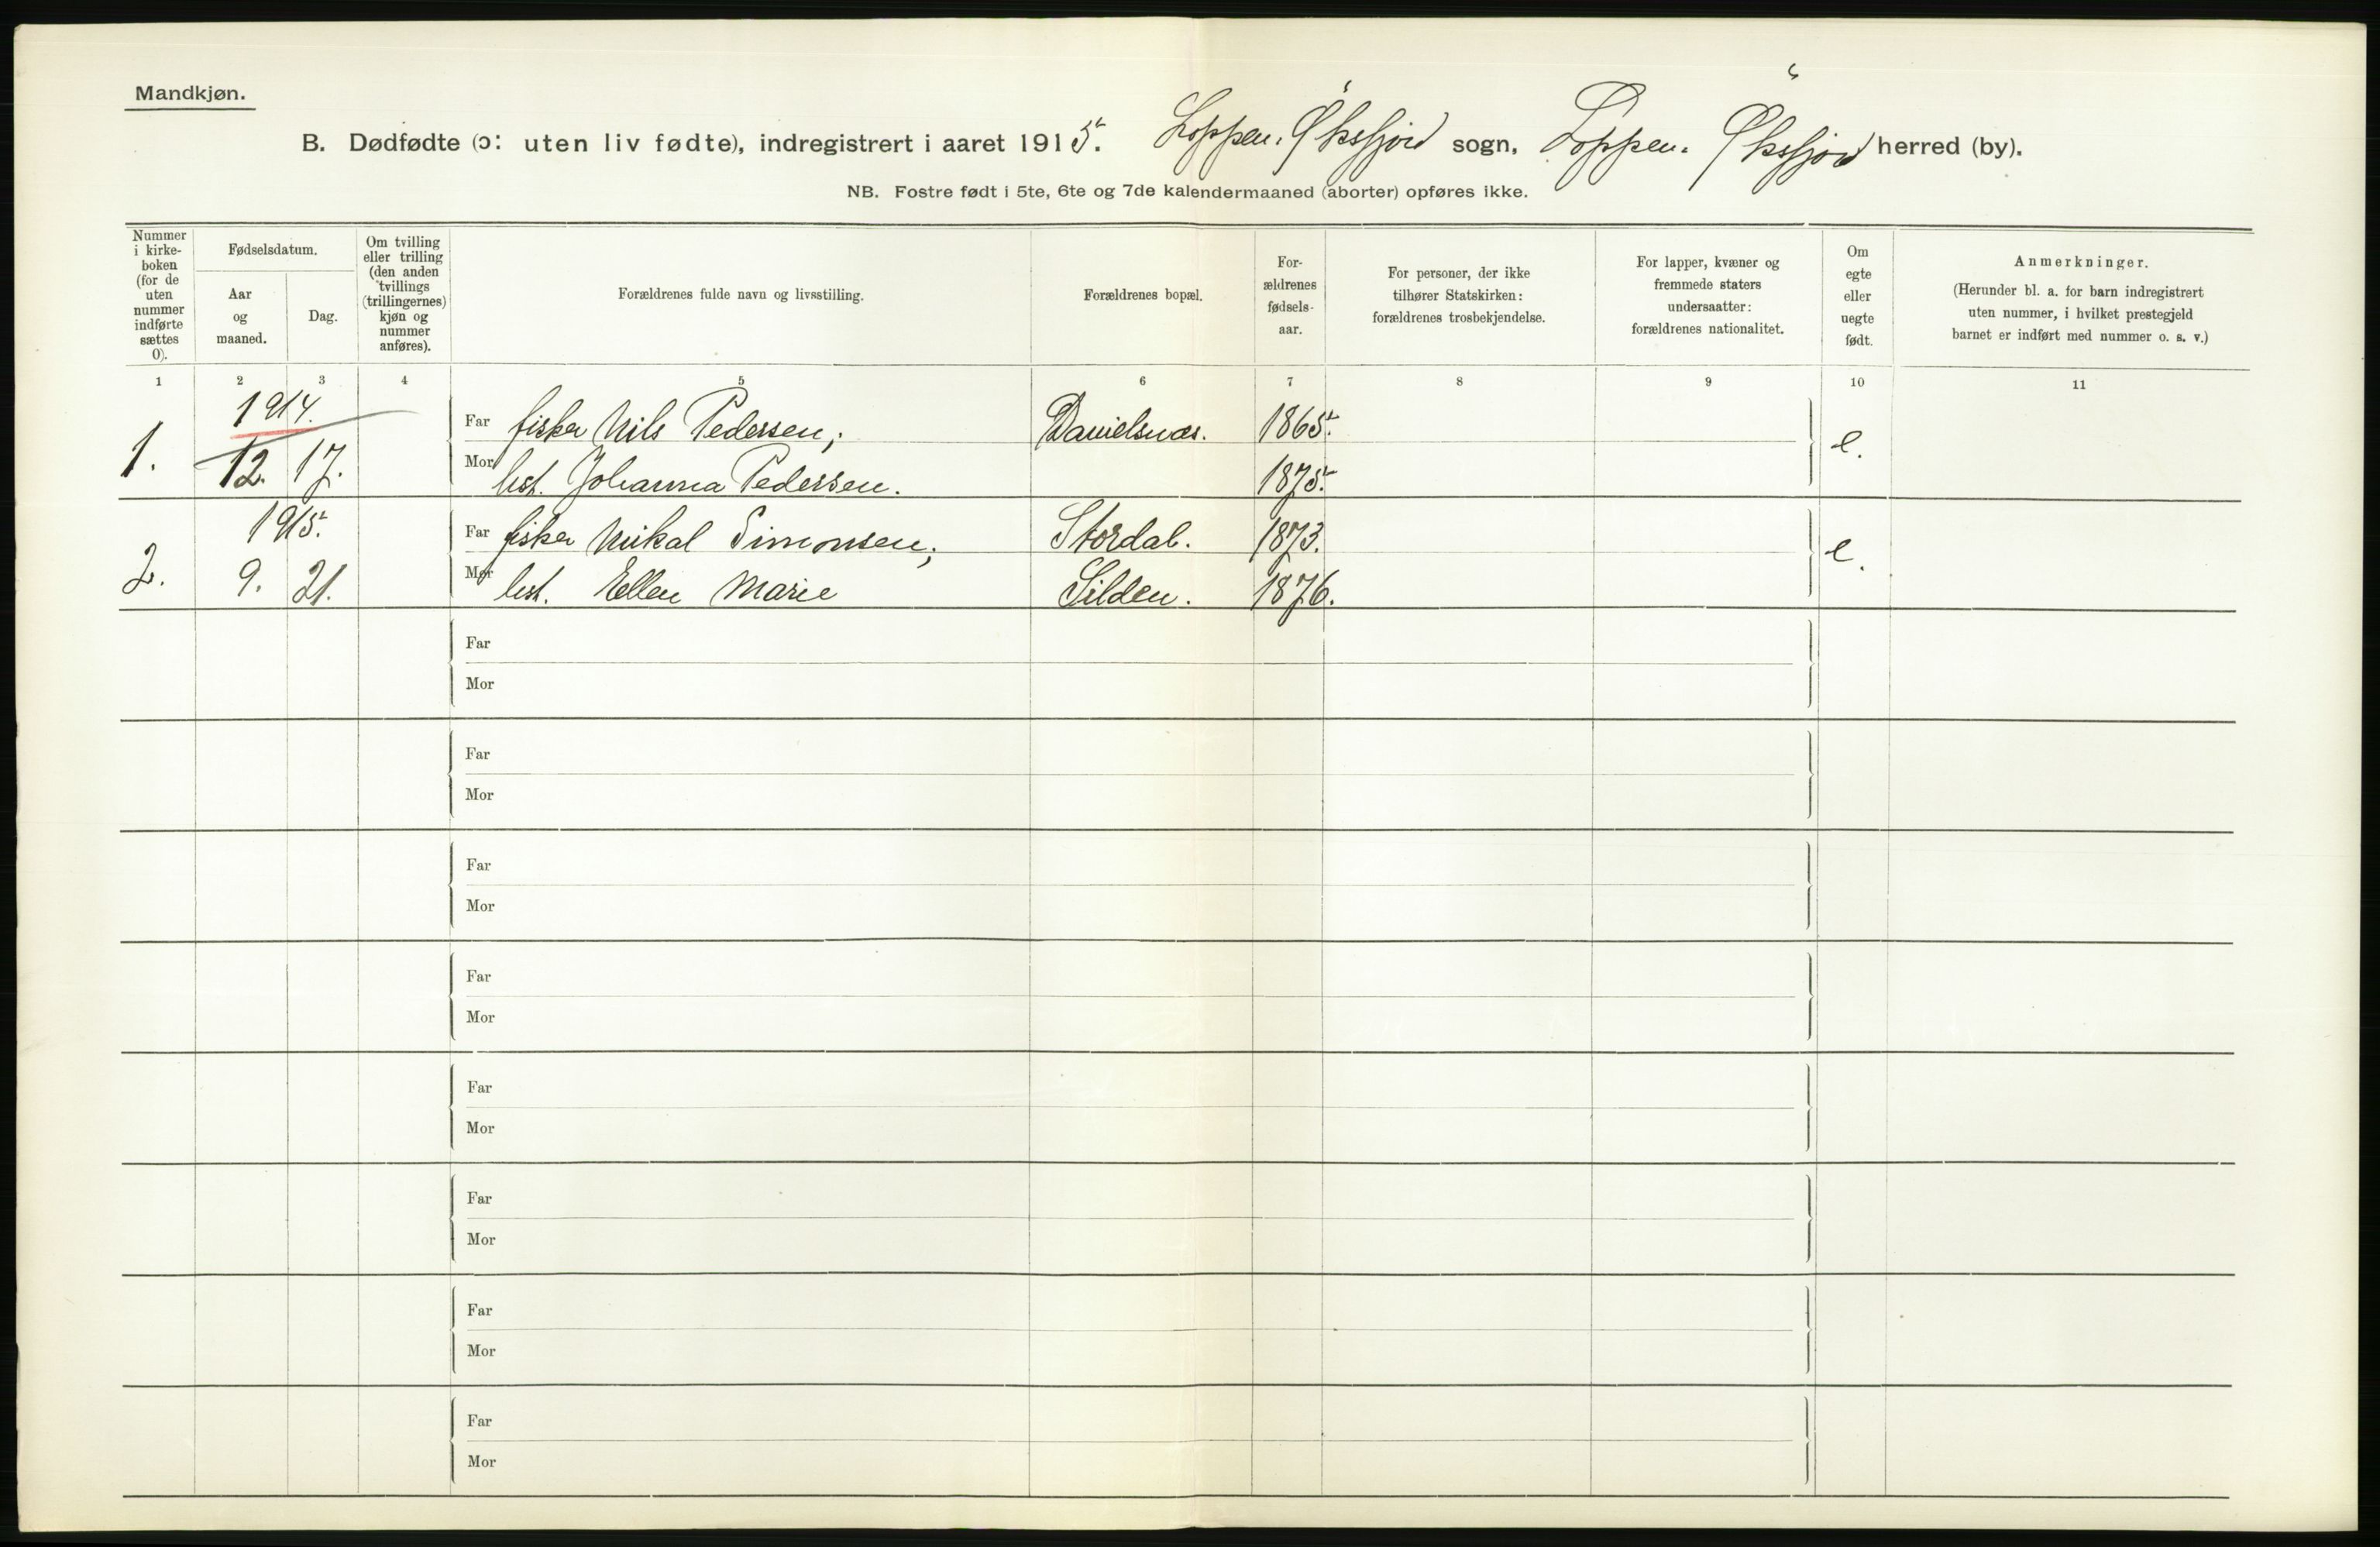 Mandkjøn.
B. Dødfødte (ɔ: uten liv fødte), indregistrert i aaret 1915. Loppen. Øksfjord sogn, Loppen. Øksfjord herred (by).
NB. Fostre født i 5te, 6te og 7de kalendermaaned (aborter) opføres ikke.
Nummer
i kirke-
boken
(for de
uten
nummer
indførte
sættes
0).
Fødselsdatum.
Aar
og
maaned.
Dag.
Om tvilling
eller trilling
(den anden
tvillings
(trillingernes)
kjøn og
nummer
anføres).
Forældrenes fulde navn og livsstilling.
Forældrenes bopæl.
For-
ældrenes
fødsels-
aar.
For personer, der ikke
tilhører Statskirken:
forældrenes trosbekjendelse.
For lapper, kvæner og
fremmede staters
undersaatter:
forældrenes nationalitet.
Om
egte
eller
uegte
født.
Anmerkninger.
(Herunder bl. a. for barn indregistrert
uten nummer, i hvilket prestegjeld
barnet er indført med nummer o. s. v.)
1 2 3 4 5 6 7 8 9 10 11
1914.
Far fisker Nils Pedersen, Danielsnæs. 1865.
1. 12. 17. e.
Mor hst. Johanna Pedersen. 1875.
1915.
Far fisker Mikal Simonsen, Stordal. 1873.
2. 9. 21. e.
Mor hst. Ellen Marie Silden. 1876.
Far
Mor
Far
Mor
Far
Mor
Far
Mor
Far
Mor
Far
Mor
Far
Mor
Far
Mor